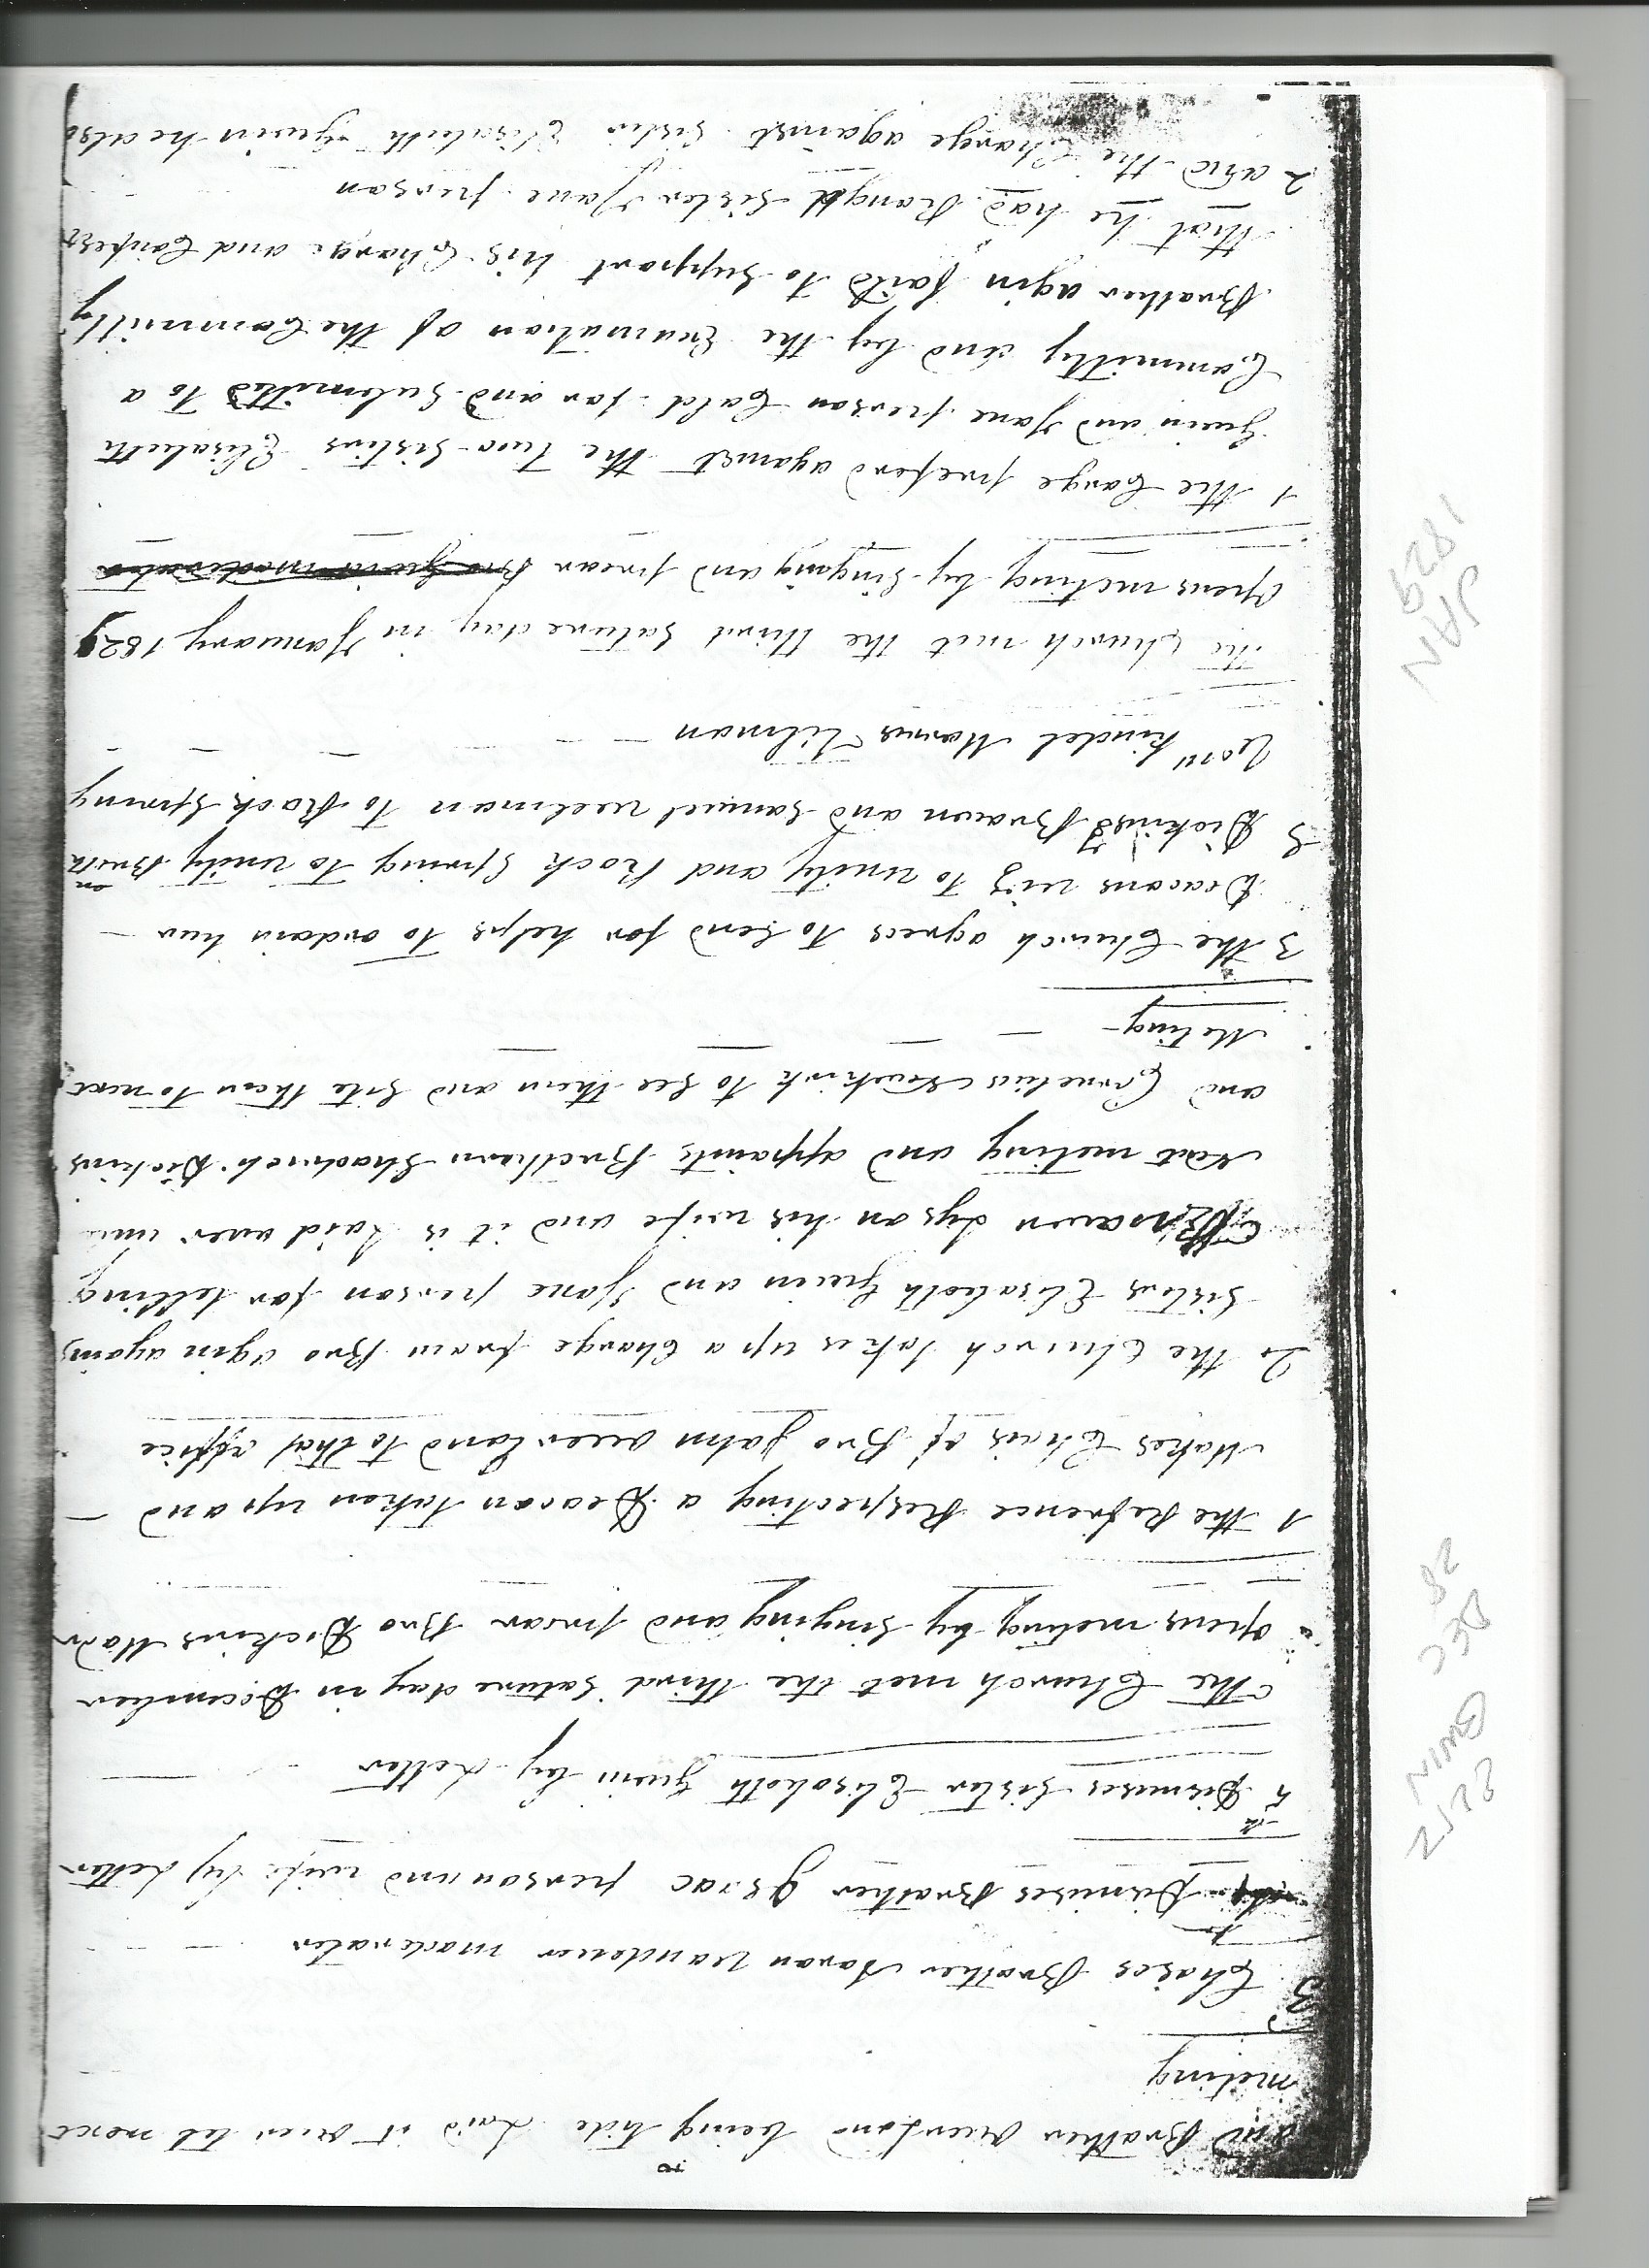 and Brother overland being tide Laid it over tel next
meting
3 Choses Brother Aaron Vandever moderator
Dismises Brother Israc person and wife by Letter
5 Dismises Sister Elisabeth Gwin by Letter
The Church met the third Saturday in December
opens meting by Singing and prear Bro Dickins Modr
1 the Refrence Respecting a Deacon taken up and
Makes Chois of Bro John overLand to that office
2 the Church takes up a Charge from Bro agin agains
Sisters Elisabeth Gwin and Jane person for telling
Brown Lys on his wife and it is Laid over
Next meting and appoints Brethren Shadrich Dickins
and Cornelius to See them and Site them to next
Meting
3 the Church agrees to Send for helps to ordain hur
Deacons viz to unity and Rock Spring to unity
3 Dickins Brown and Samuel welman to Rock Spring
kindel Morris Tilman
The Church met the third Saturday in January 1829
opens meting by Singing and prear Bro Gwin moderator
1 the Carge preford against the Two Sisters Elisabeth
Gwin and Jane person Cald for and Submitted to a
Committy and by the Exumation of the Committy
Brother agin faild to Support his Charge and Confess
that he had Rongd Sister Jane person
2 and the Charge against Sister Elisabeth Gwin he also
ELIZ
GWIN
DEC
28
JAN
1829